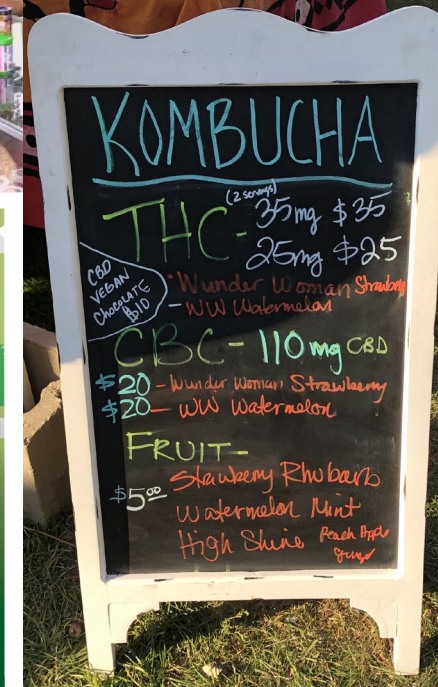 KOMBUCHA
(2 servings)
THC- 35mg $35
25mg $25
CBD
VEGAN
CHOCOLATE
$10
Wunder Woman Strawberry
- WW Watermelon
CBC- 110mg CBD
$20 - Wunder Woman Strawberry
$20 - WW Watermelon
FRUIT-
$5.00
Strawberry Rhubarb
Watermelon Mint
High Shine Peach Apple